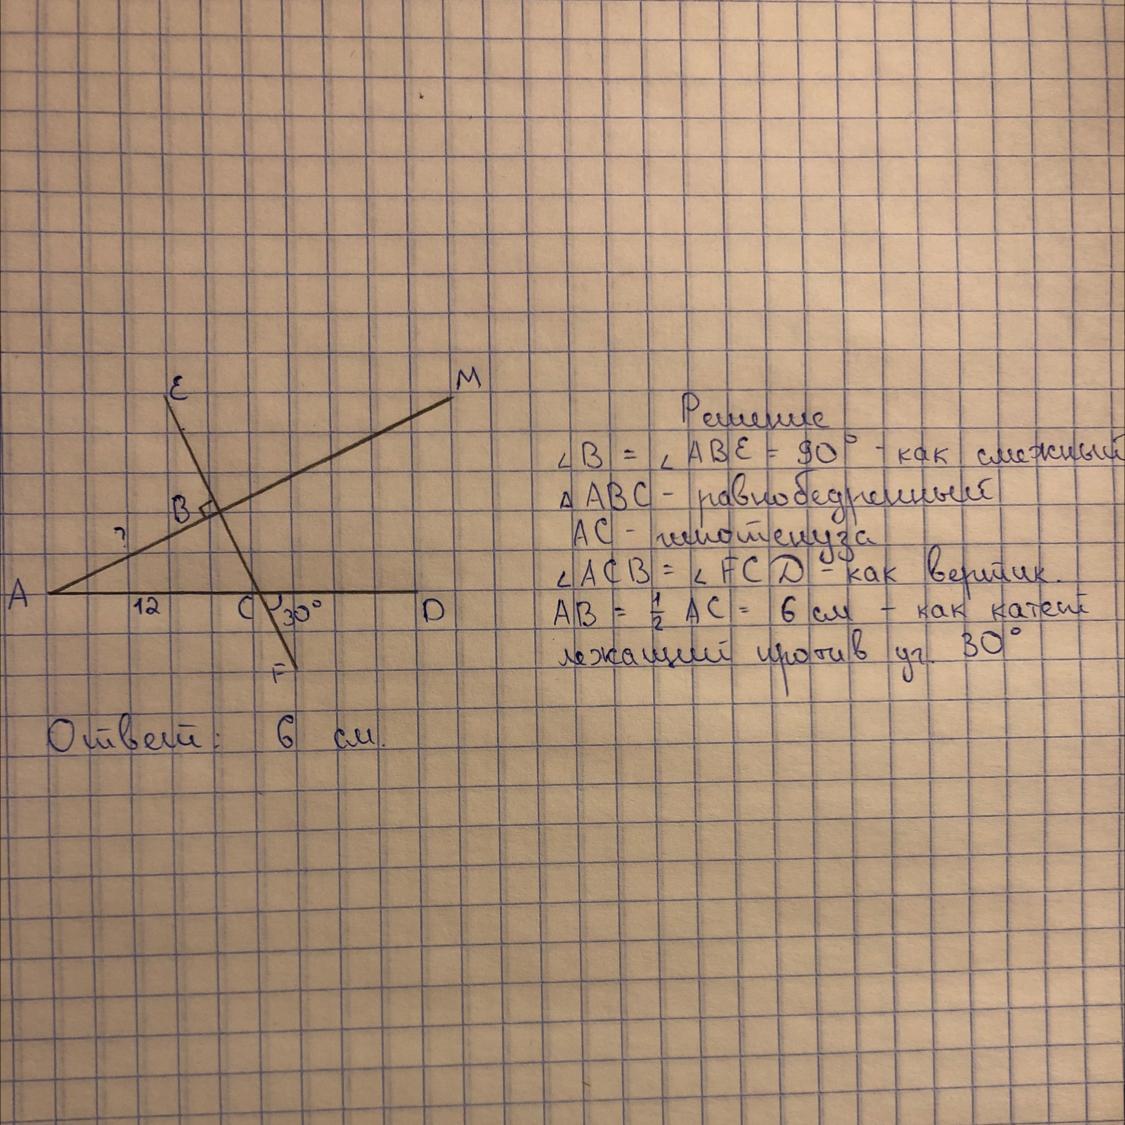 E
M
B
?
A
12
C
30°
D
F
Решение
∠B = ∠ABE = 90° - как смежный
△ABC - равнобедренный
AC - гипотенуза
∠ACB = ∠FCD - как вертик.
AB = 1/2 AC = 6 см - как катет
лежащий против уг. 30°
Ответ: 6 см.